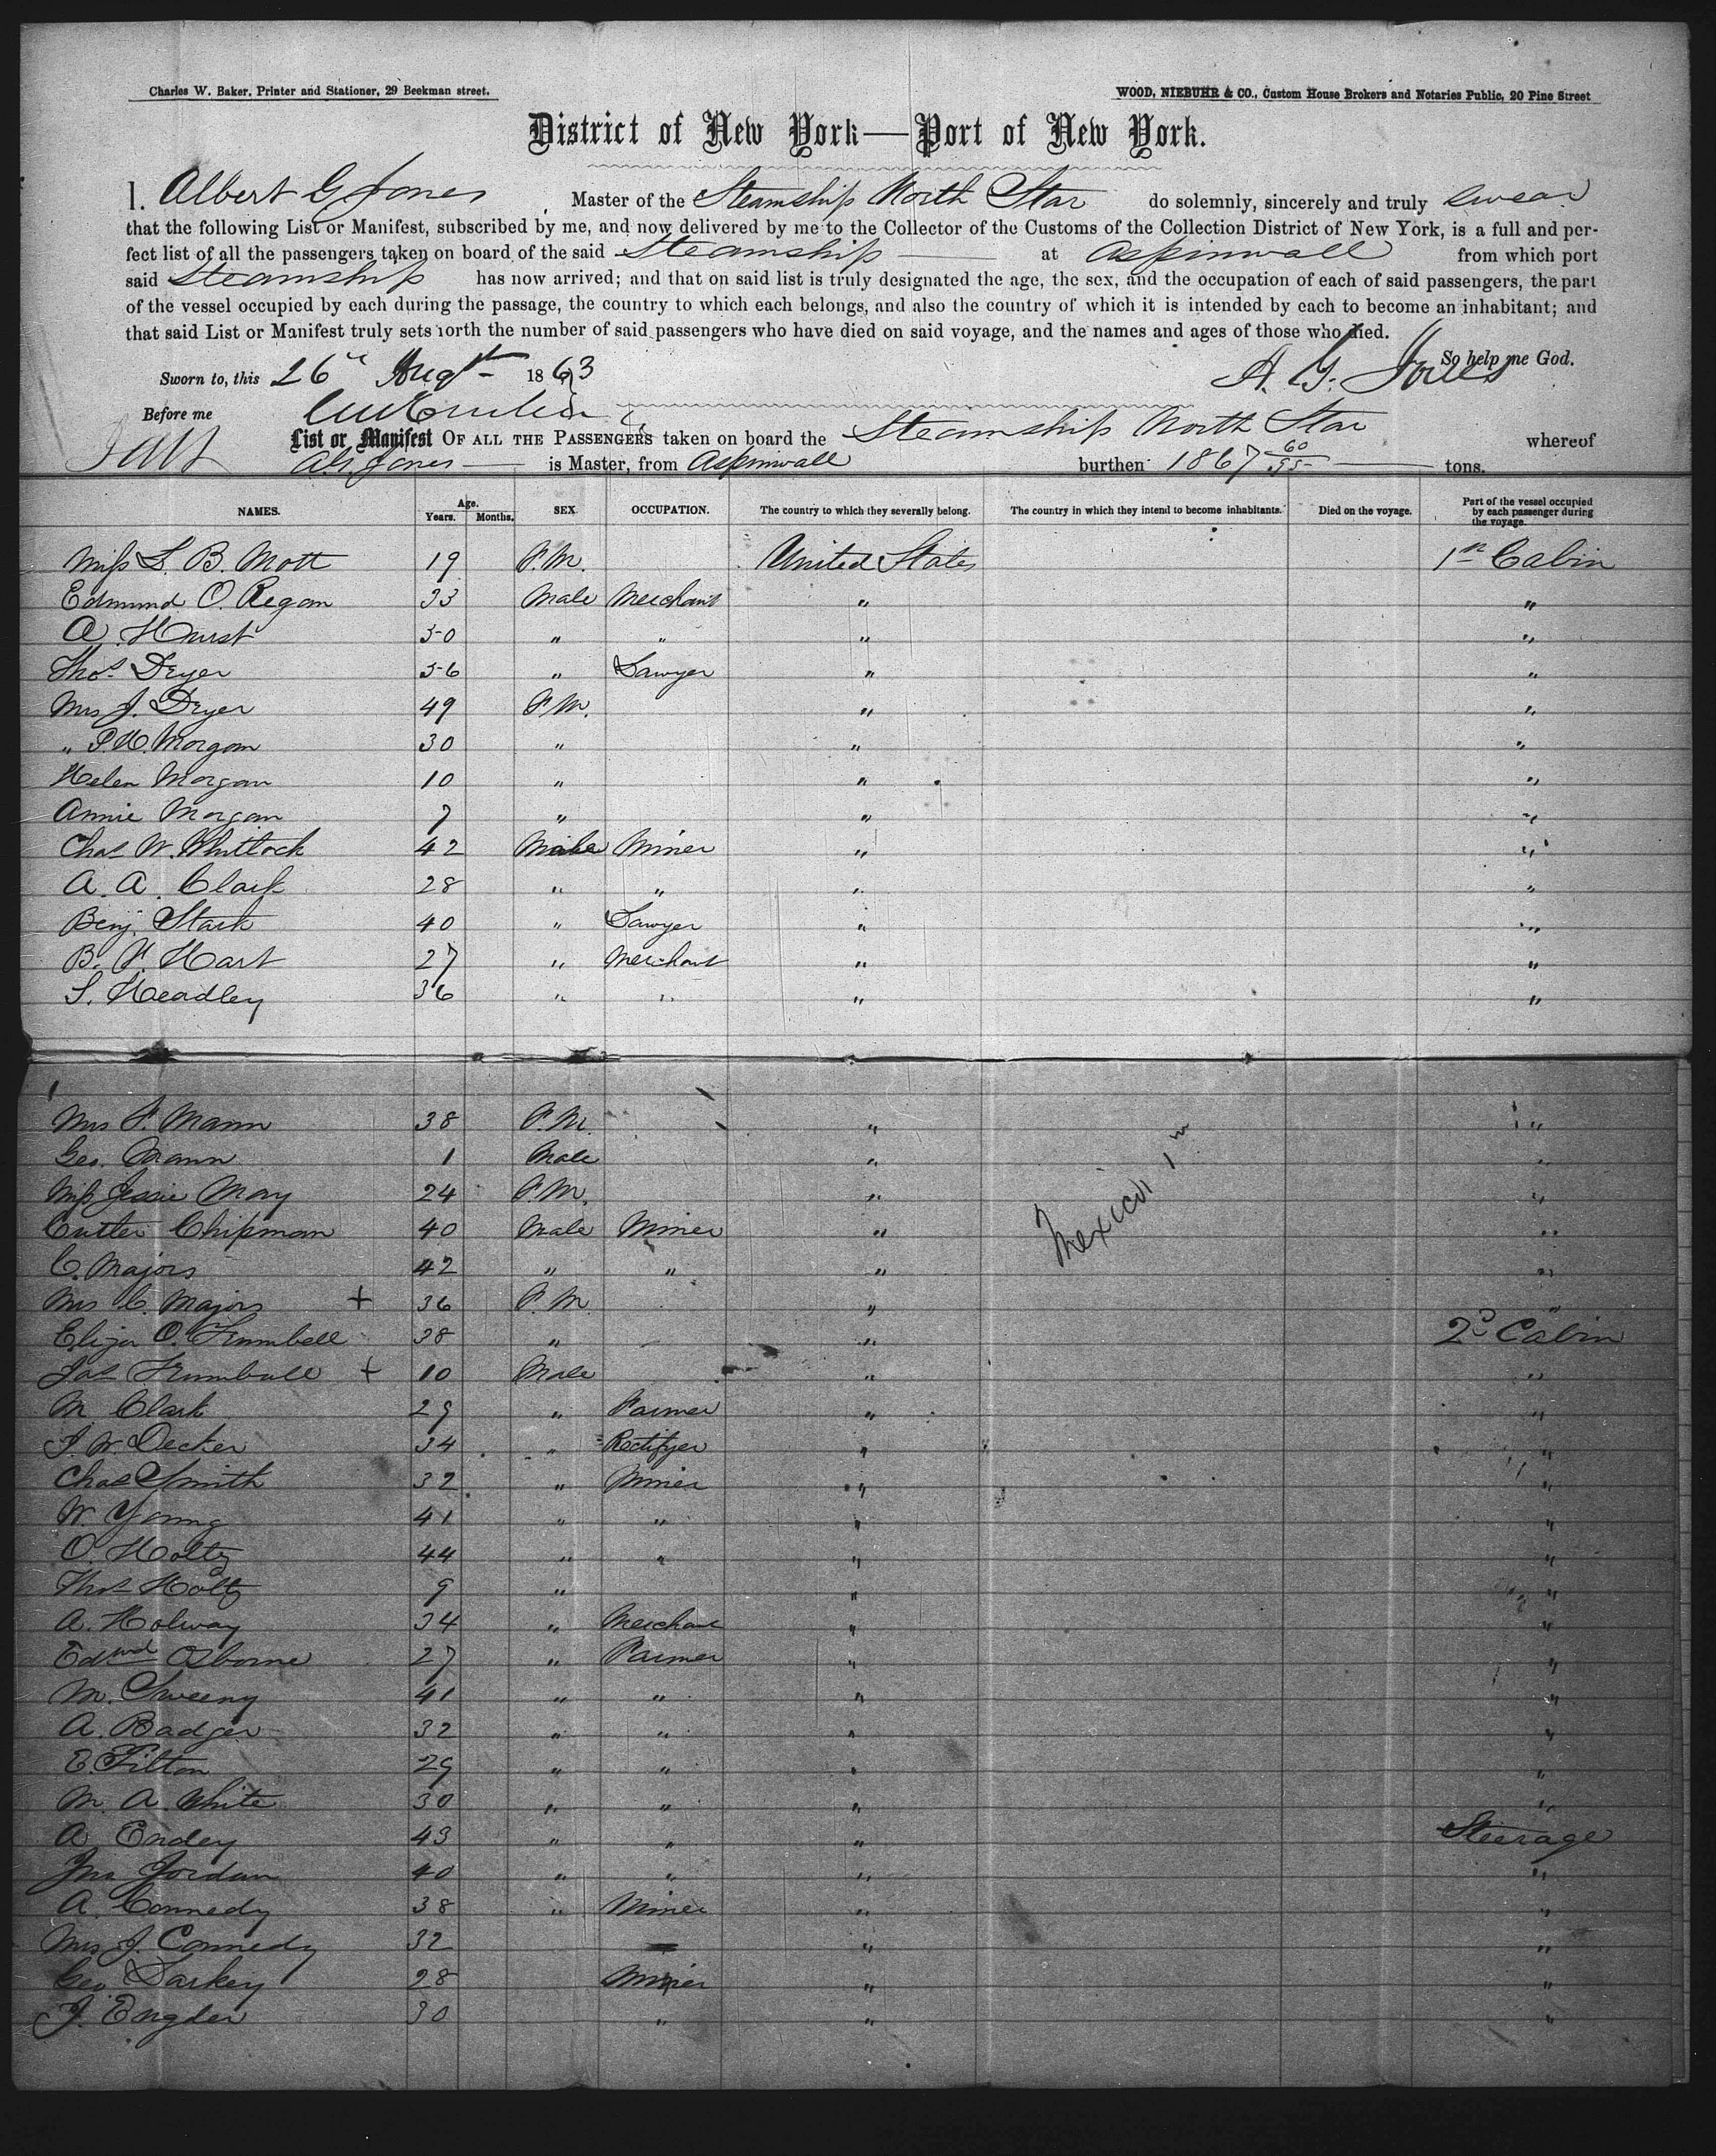 Charles W. Baker, Printer and Stationer, 29 Beekman street. WOOD, NIEBUHR & CO., Custom House Brokers and Notaries Public, 20 Pine Street
District of New York—Port of New York.
I. Albert G Jones Master of the Steamship North Star do solemnly, sincerely and truly swear
that the following List or Manifest, subscribed by me, and now delivered by me to the Collector of the Customs of the Collection District of New York, is a full and per-
fect list of all the passengers taken on board of the said Steamship at Aspinwall from which port
said Steamship has now arrived; and that on said list is truly designated the age, the sex, and the occupation of each of said passengers, the part
of the vessel occupied by each during the passage, the country to which each belongs, and also the country of which it is intended by each to become an inhabitant; and
that said List or Manifest truly sets forth the number of said passengers who have died on said voyage, and the names and ages of those who died.
So help me God.
Sworn to, this 26" Augt 1863 A. G. Jones
Before me
List or Manifest OF ALL THE PASSENGERS taken on board the Steamship North Star whereof
A G Jones is Master, from Aspinwall burthen 1867 60/95 tons.
NAMES. Age. Years. Months. SEX. OCCUPATION. The country to which they severally belong. The country in which they intend to become inhabitants. Died on the voyage. Part of the vessel occupied by each passenger during the voyage.
Miss L. B. Mott 19 F.M. United States 1st Cabin
Edmund O. Regan 33 Male Merchant " "
A. Hurst 50 " " " "
Thos Dryer 56 " Lawyer " "
Mrs J. Dryer 49 F.M. " "
" P.H. Morgan 30 " " "
Helen Morgan 10 " " "
Annie Morgan 7 " " "
Chas W. Whitlock 42 Male Miner " "
A. A. Clark 28 " " " "
Benj. Stark 40 " Lawyer " "
B. F. Hart 27 " Merchant " "
S. Headley 36 " " " "
Mrs F. Mann 38 F.M. " "
Geo. Mann 1 Male " "
Miss Jessie May 24 F.M. " "
Cutler Chipman 40 Male Miner " "
C. Majors 42 " " " "
Mrs C. Majors + 36 F.M. " "
Eliza O. Trumbell 38 " " 2d Cabin
Jas Trumbull + 10 Male " "
M. Clark 29 " Farmer " "
J. W. Decker 34 " Rectifyer " "
Chas Smith 32 " Miner " "
W. Young 41 " " " "
O. Holtz 44 " " " "
Thos Holtz 9 " " "
A. Holway 34 " Merchant " "
Edwd Osborne 27 " Farmer " "
M. Sweeny 41 " " " "
A. Badger 32 " " " "
E. Tilton 29 " " " "
M. A. White 30 " " " "
A Endey 43 " " " Steerage
Jno Jordan 40 " " " "
A. Connedy 38 " Miner " "
Mrs J. Connedy 32 " "
Geo Larkey 28 Miner " "
J. Engder 30 " " "